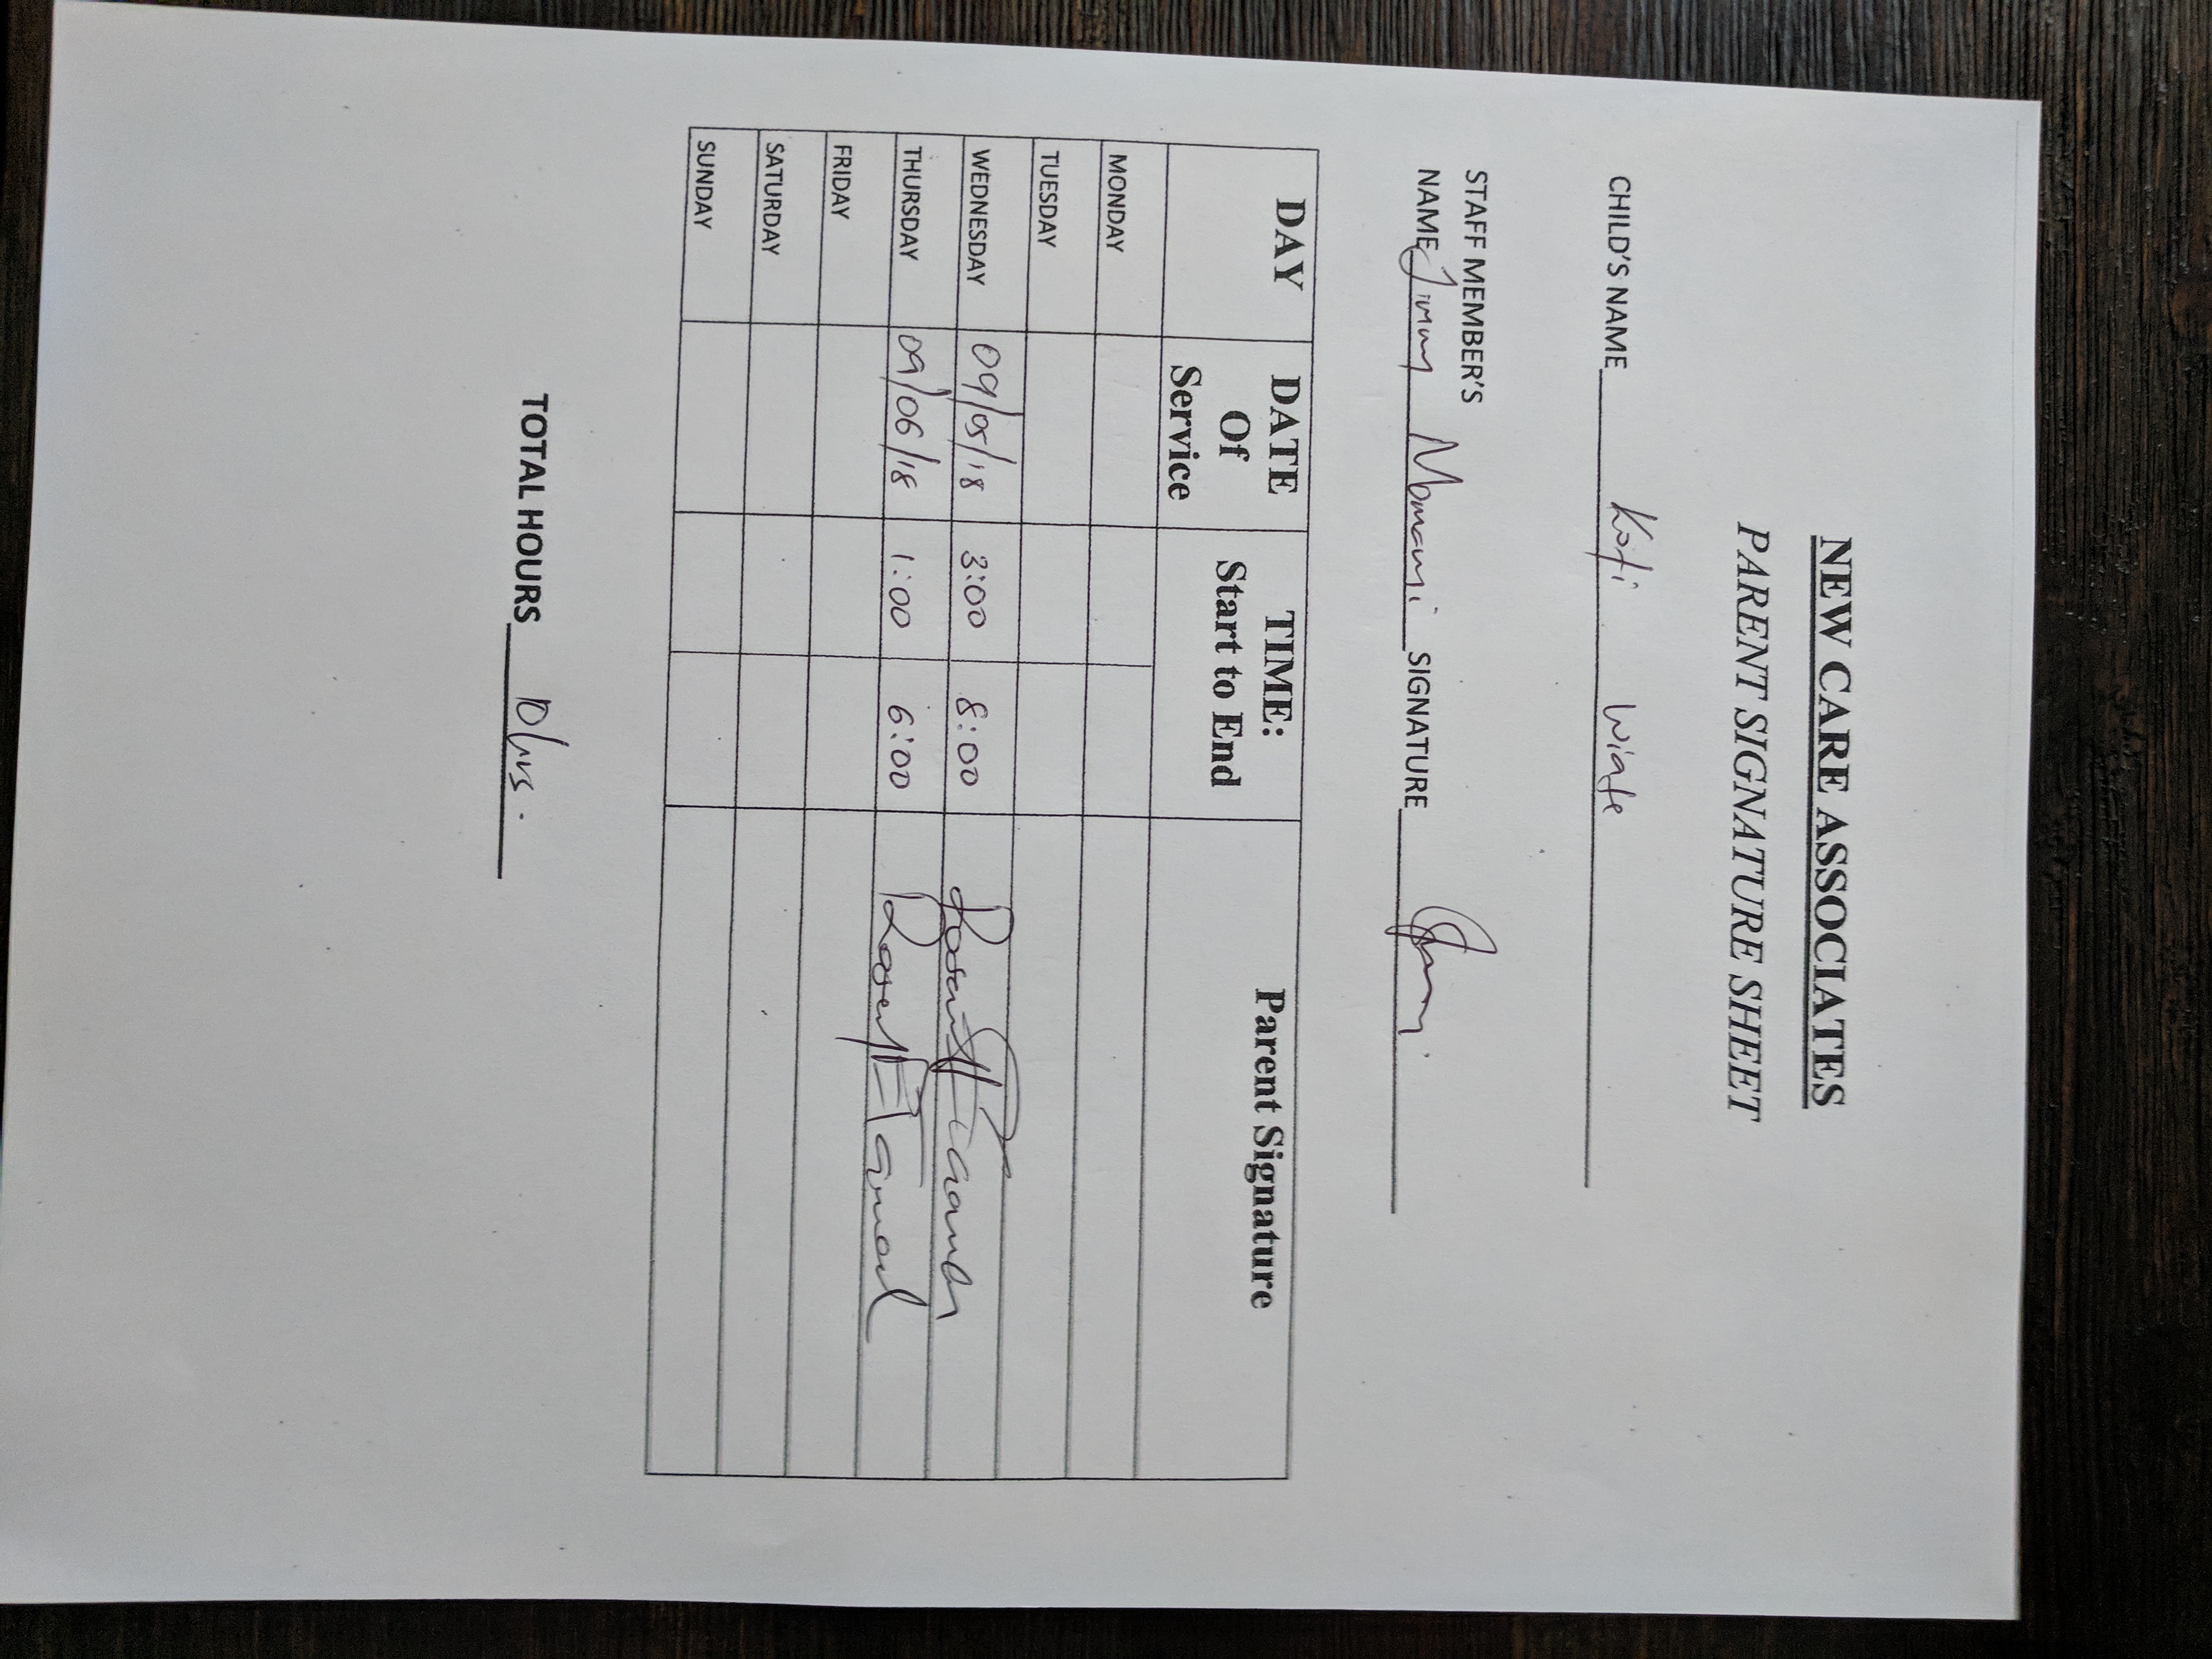 NEW CARE ASSOCIATES
PARENT SIGNATURE SHEET
CHILD'S NAME Kofi Wiafe
STAFF MEMBER'S
NAME Jimmy Mbmami SIGNATURE
DAY DATE Of Service TIME: Start to End Parent Signature
MONDAY
TUESDAY
WEDNESDAY 09/05/18 3:00 8:00
THURSDAY 09/06/18 1:00 6:00
FRIDAY
SATURDAY
SUNDAY
TOTAL HOURS 10hrs.